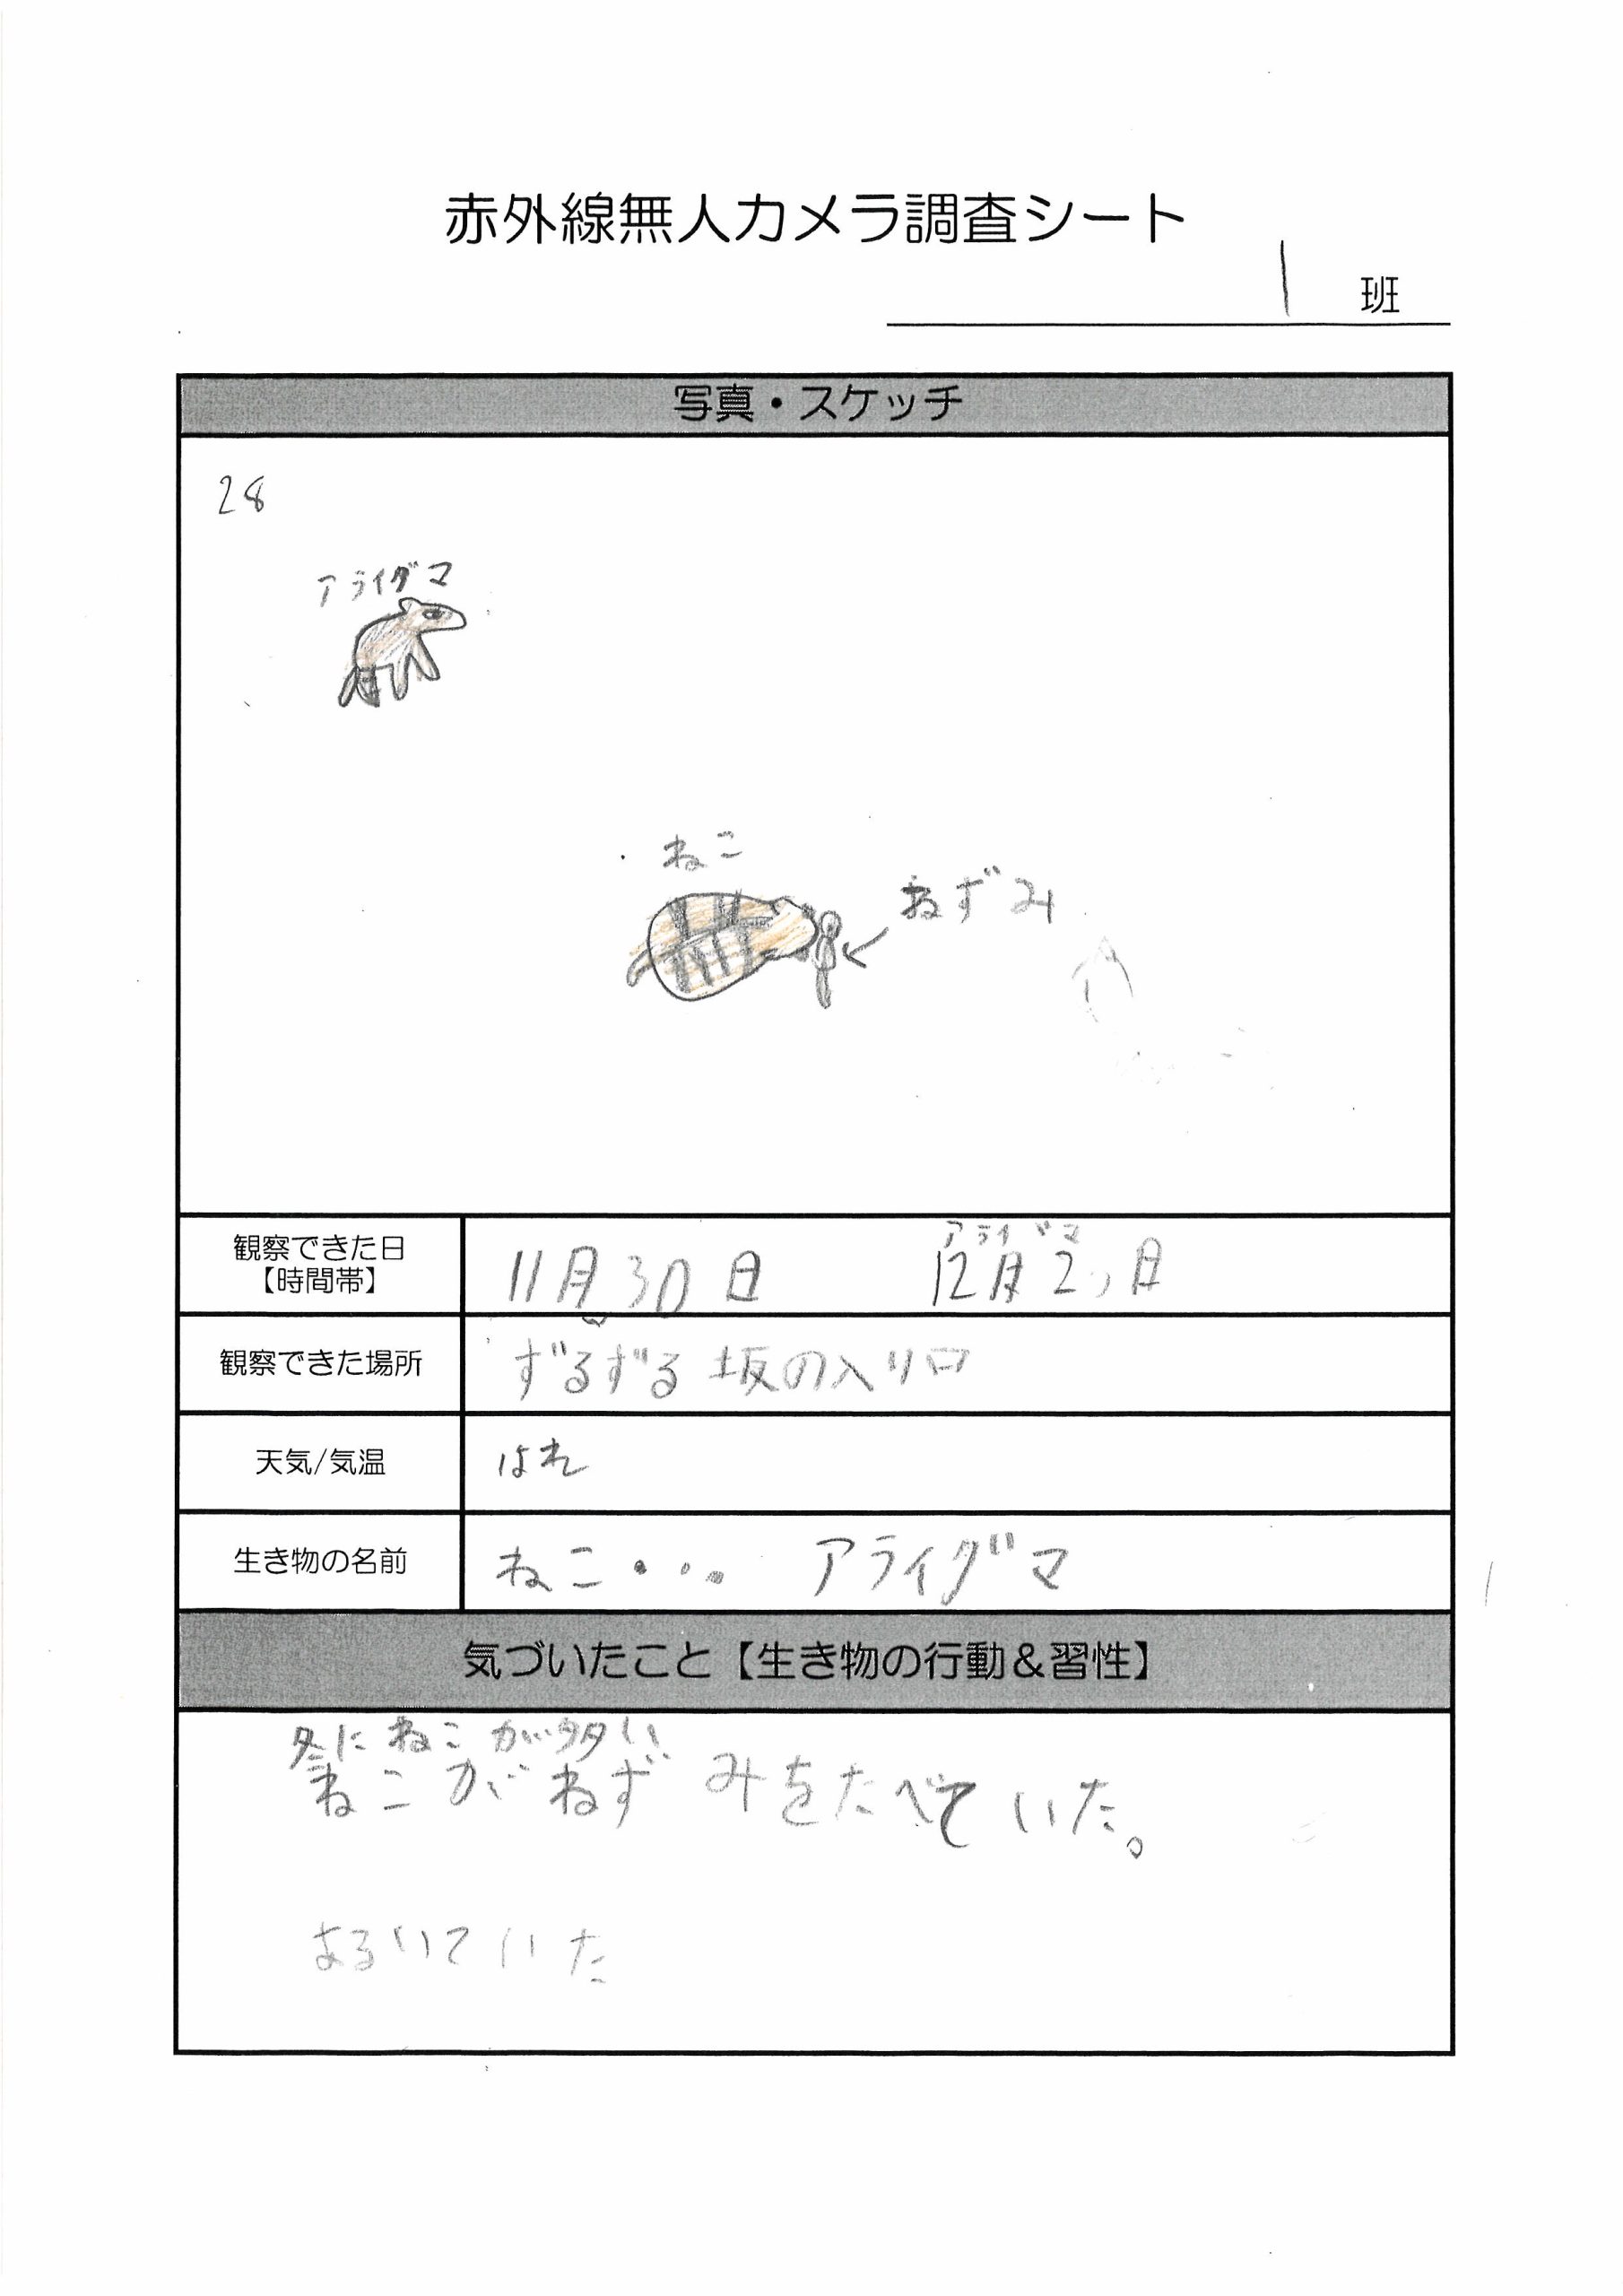 赤外線無人カメラ調査シート
1 班
写真・スケッチ
28
アライグマ
ねこ
ねずみ
観察できた日
【時間帯】
11月30日
アライグマ
12月2 日
観察できた場所
ずるずる坂の入り口
天気/気温
はれ
生き物の名前
ねこ・・・ アライグマ
気づいたこと【生き物の行動&習性】
冬にねこが多い
ねこがねずみをたべていた。
あるいていた